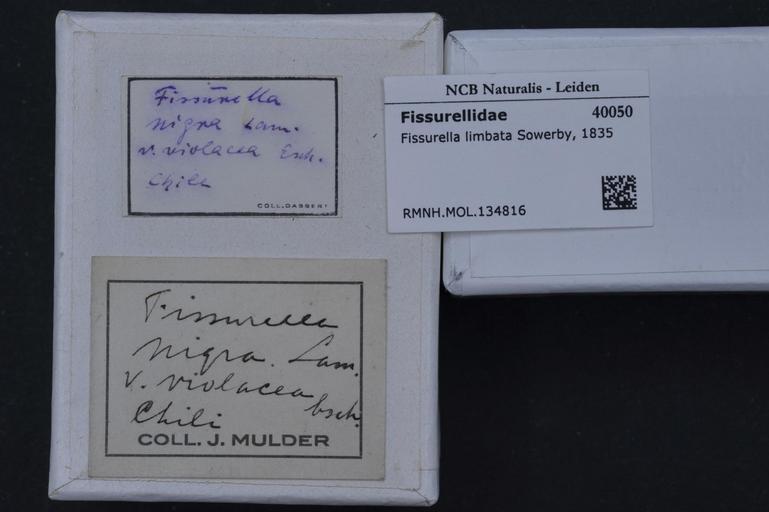 Fissurella
nigra Lam.
v. violacea Esch.
Chili
COLL. DASBERT
NCB Naturalis - Leiden
Fissurellidae 40050
Fissurella limbata Sowerby, 1835
RMNH.MOL.134816
Fissurella
nigra. Lam.
v. violacea
Esch.
Chili
COLL. J. MULDER